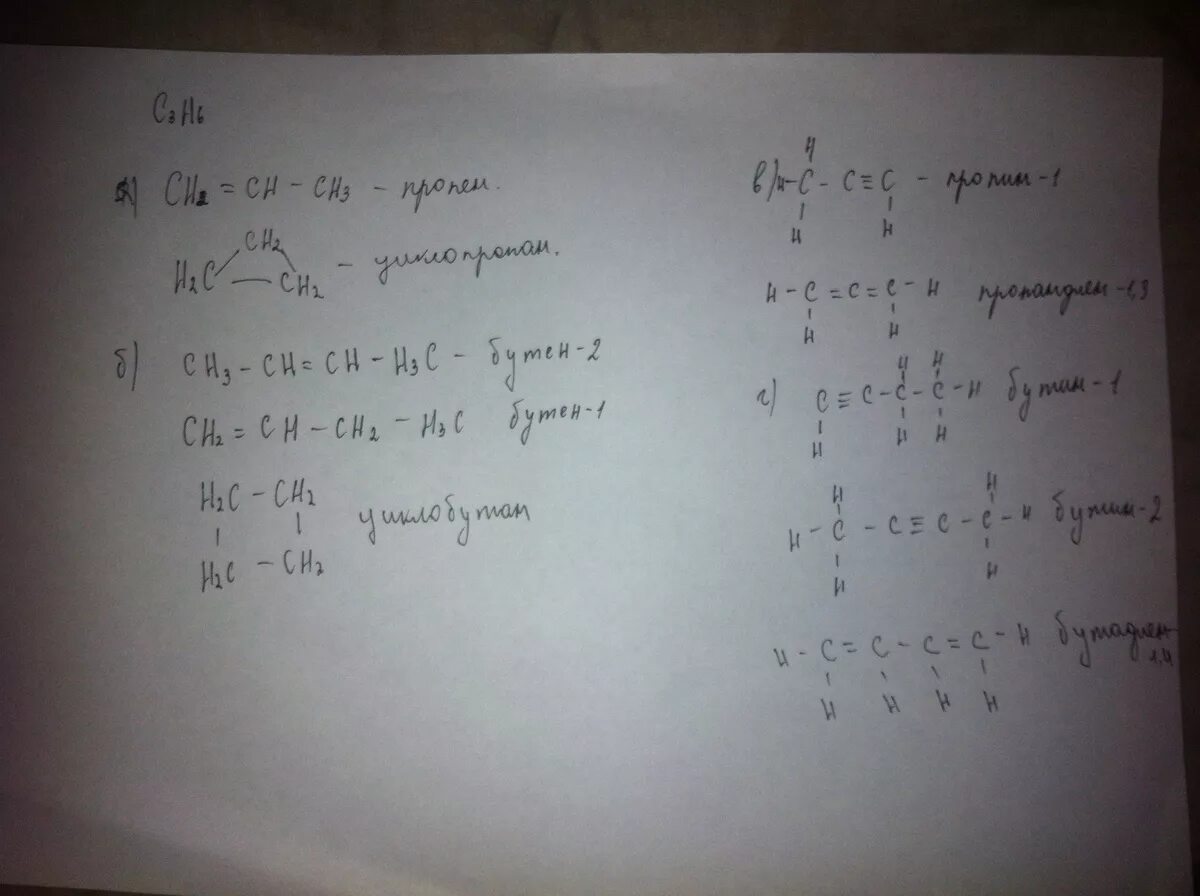 C₃H₆
а) CH₂ = CH – CH₃ – пропен.
CH₂
H₂C — CH₂ – циклопропан.
б) CH₃ – CH = CH – H₃C – бутен-2
CH₂ = CH – CH₂ – H₃C бутен-1
H₂C – CH₂
циклобутан
H₂C – CH₂
H
в) H – C – C ≡ C – пропин-1
H H
H – C = C = C – H пропандиен-1,3
H H
H H
г) C ≡ C – C – C – H бутин-1
H H H
H H
H – C – C ≡ C – C – H бутин-2
H H
H – C = C – C = C – H бутадиен-
1,4
H H H H